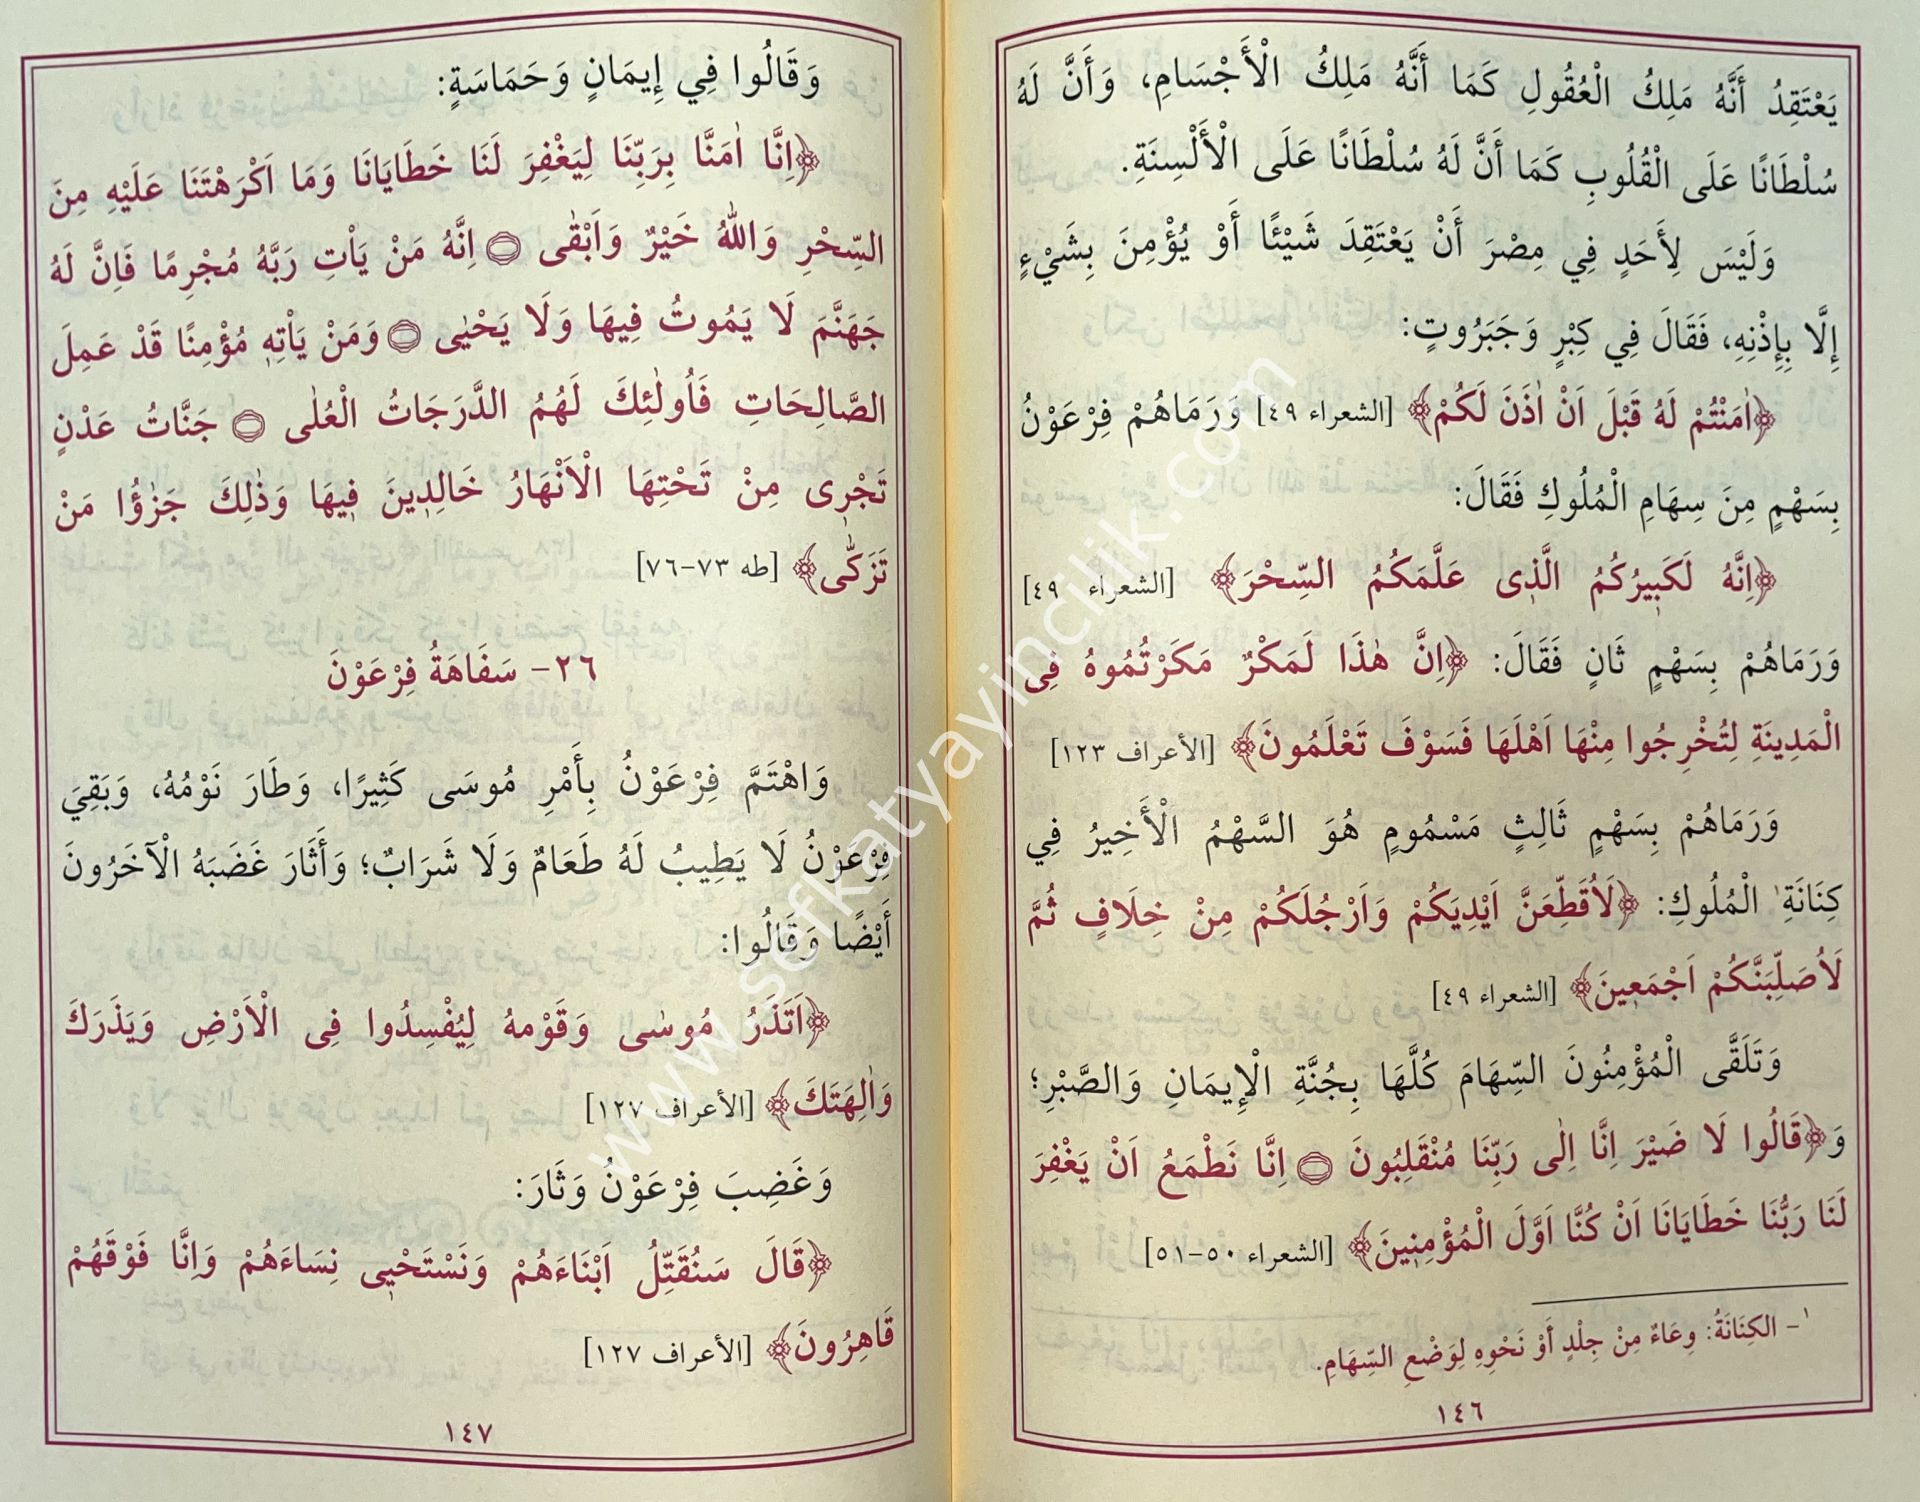 يَعْتَقِدُ أَنَّهُ مَلِكُ الْعُقُولِ كَمَا أَنَّهُ مَلِكُ الْأَجْسَامِ، وَأَنَّ لَهُ
سُلْطَانًا عَلَى الْقُلُوبِ كَمَا أَنَّ لَهُ سُلْطَانًا عَلَى الْأَلْسِنَةِ.
وَلَيْسَ لِأَحَدٍ فِي مِصْرَ أَنْ يَعْتَقِدَ شَيْئًا أَوْ يُؤْمِنَ بِشَيْءٍ
إِلَّا بِإِذْنِهِ، فَقَالَ فِي كِبْرٍ وَجَبَرُوتٍ:
﴿اٰمَنْتُمْ لَهُ قَبْلَ اَنْ اٰذَنَ لَكُمْ﴾ [الشعراء ٤٩] وَرَمَاهُمْ فِرْعَوْنُ
بِسَهْمٍ مِنَ سِهَامِ الْمُلُوكِ فَقَالَ:
﴿اِنَّهُ لَكَبٖيرُكُمُ الَّذٖى عَلَّمَكُمُ السِّحْرَ﴾ [الشعراء ٤٩]
وَرَمَاهُمْ بِسَهْمٍ ثَانٍ فَقَالَ: ﴿اِنَّ هٰذَا لَمَكْرٌ مَكَرْتُمُوهُ فِى
الْمَدٖينَةِ لِتُخْرِجُوا مِنْهَا اَهْلَهَا فَسَوْفَ تَعْلَمُونَ﴾ [الأعراف ١٢٣]
وَرَمَاهُمْ بِسَهْمٍ ثَالِثٍ مَسْمُومٍ هُوَ السَّهْمُ الْأَخِيرُ فِي
كِنَانَةِ ١ الْمُلُوكِ: ﴿لَاُقَطِّعَنَّ اَيْدِيَكُمْ وَاَرْجُلَكُمْ مِنْ خِلَافٍ ثُمَّ
لَاُصَلِّبَنَّكُمْ اَجْمَعٖينَ﴾ [الشعراء ٤٩]
وَتَلَقَّى الْمُؤْمِنُونَ السِّهَامَ كُلَّهَا بِجُنَّةِ الْإِيمَانِ وَالصَّبْرِ؛
وَ﴿قَالُوا لَا ضَيْرَ اِنَّا اِلٰى رَبِّنَا مُنْقَلِبُونَ ۝ اِنَّا نَطْمَعُ اَنْ يَغْفِرَ
لَنَا رَبُّنَا خَطَايَانَا اَنْ كُنَّا اَوَّلَ الْمُؤْمِنٖينَ﴾ [الشعراء ٥٠-٥١]
١- الكِنَانَةُ: وِعَاءٌ مِنْ جِلْدٍ أَوْ نَحْوِهِ لِوَضْعِ السِّهَامِ.
١٤٦
وَقَالُوا فِي إِيمَانٍ وَحَمَاسَةٍ:
﴿اِنَّا اٰمَنَّا بِرَبِّنَا لِيَغْفِرَ لَنَا خَطَايَانَا وَمَا اَكْرَهْتَنَا عَلَيْهِ مِنَ
السِّحْرِ وَاللّٰهُ خَيْرٌ وَاَبْقٰى ۝ اِنَّهُ مَنْ يَاْتِ رَبَّهُ مُجْرِمًا فَاِنَّ لَهُ
جَهَنَّمَ لَا يَمُوتُ فٖيهَا وَلَا يَحْيٰى ۝ وَمَنْ يَاْتِهٖ مُؤْمِنًا قَدْ عَمِلَ
الصَّالِحَاتِ فَاُولٰئِكَ لَهُمُ الدَّرَجَاتُ الْعُلٰى ۝ جَنَّاتُ عَدْنٍ
تَجْرٖى مِنْ تَحْتِهَا الْاَنْهَارُ خَالِدٖينَ فٖيهَا وَذٰلِكَ جَزٰؤُا مَنْ
تَزَكّٰى﴾ [طه ٧٣-٧٦]
٢٦- سَفَاهَةُ فِرْعَوْنَ
وَاهْتَمَّ فِرْعَوْنُ بِأَمْرِ مُوسَى كَثِيرًا، وَطَارَ نَوْمُهُ، وَبَقِيَ
فِرْعَوْنُ لَا يَطِيبُ لَهُ طَعَامٌ وَلَا شَرَابٌ؛ وَأَثَارَ غَضَبَهُ الْآخَرُونَ
أَيْضًا وَقَالُوا:
﴿اَتَذَرُ مُوسٰى وَقَوْمَهُ لِيُفْسِدُوا فِى الْاَرْضِ وَيَذَرَكَ
وَاٰلِهَتَكَ﴾ [الأعراف ١٢٧]
وَغَضِبَ فِرْعَوْنُ وَثَارَ:
﴿قَالَ سَنُقَتِّلُ اَبْنَاءَهُمْ وَنَسْتَحْيٖى نِسَاءَهُمْ وَاِنَّا فَوْقَهُمْ
قَاهِرُونَ﴾ [الأعراف ١٢٧]
١٤٧
www.sefkatyayincilik.com